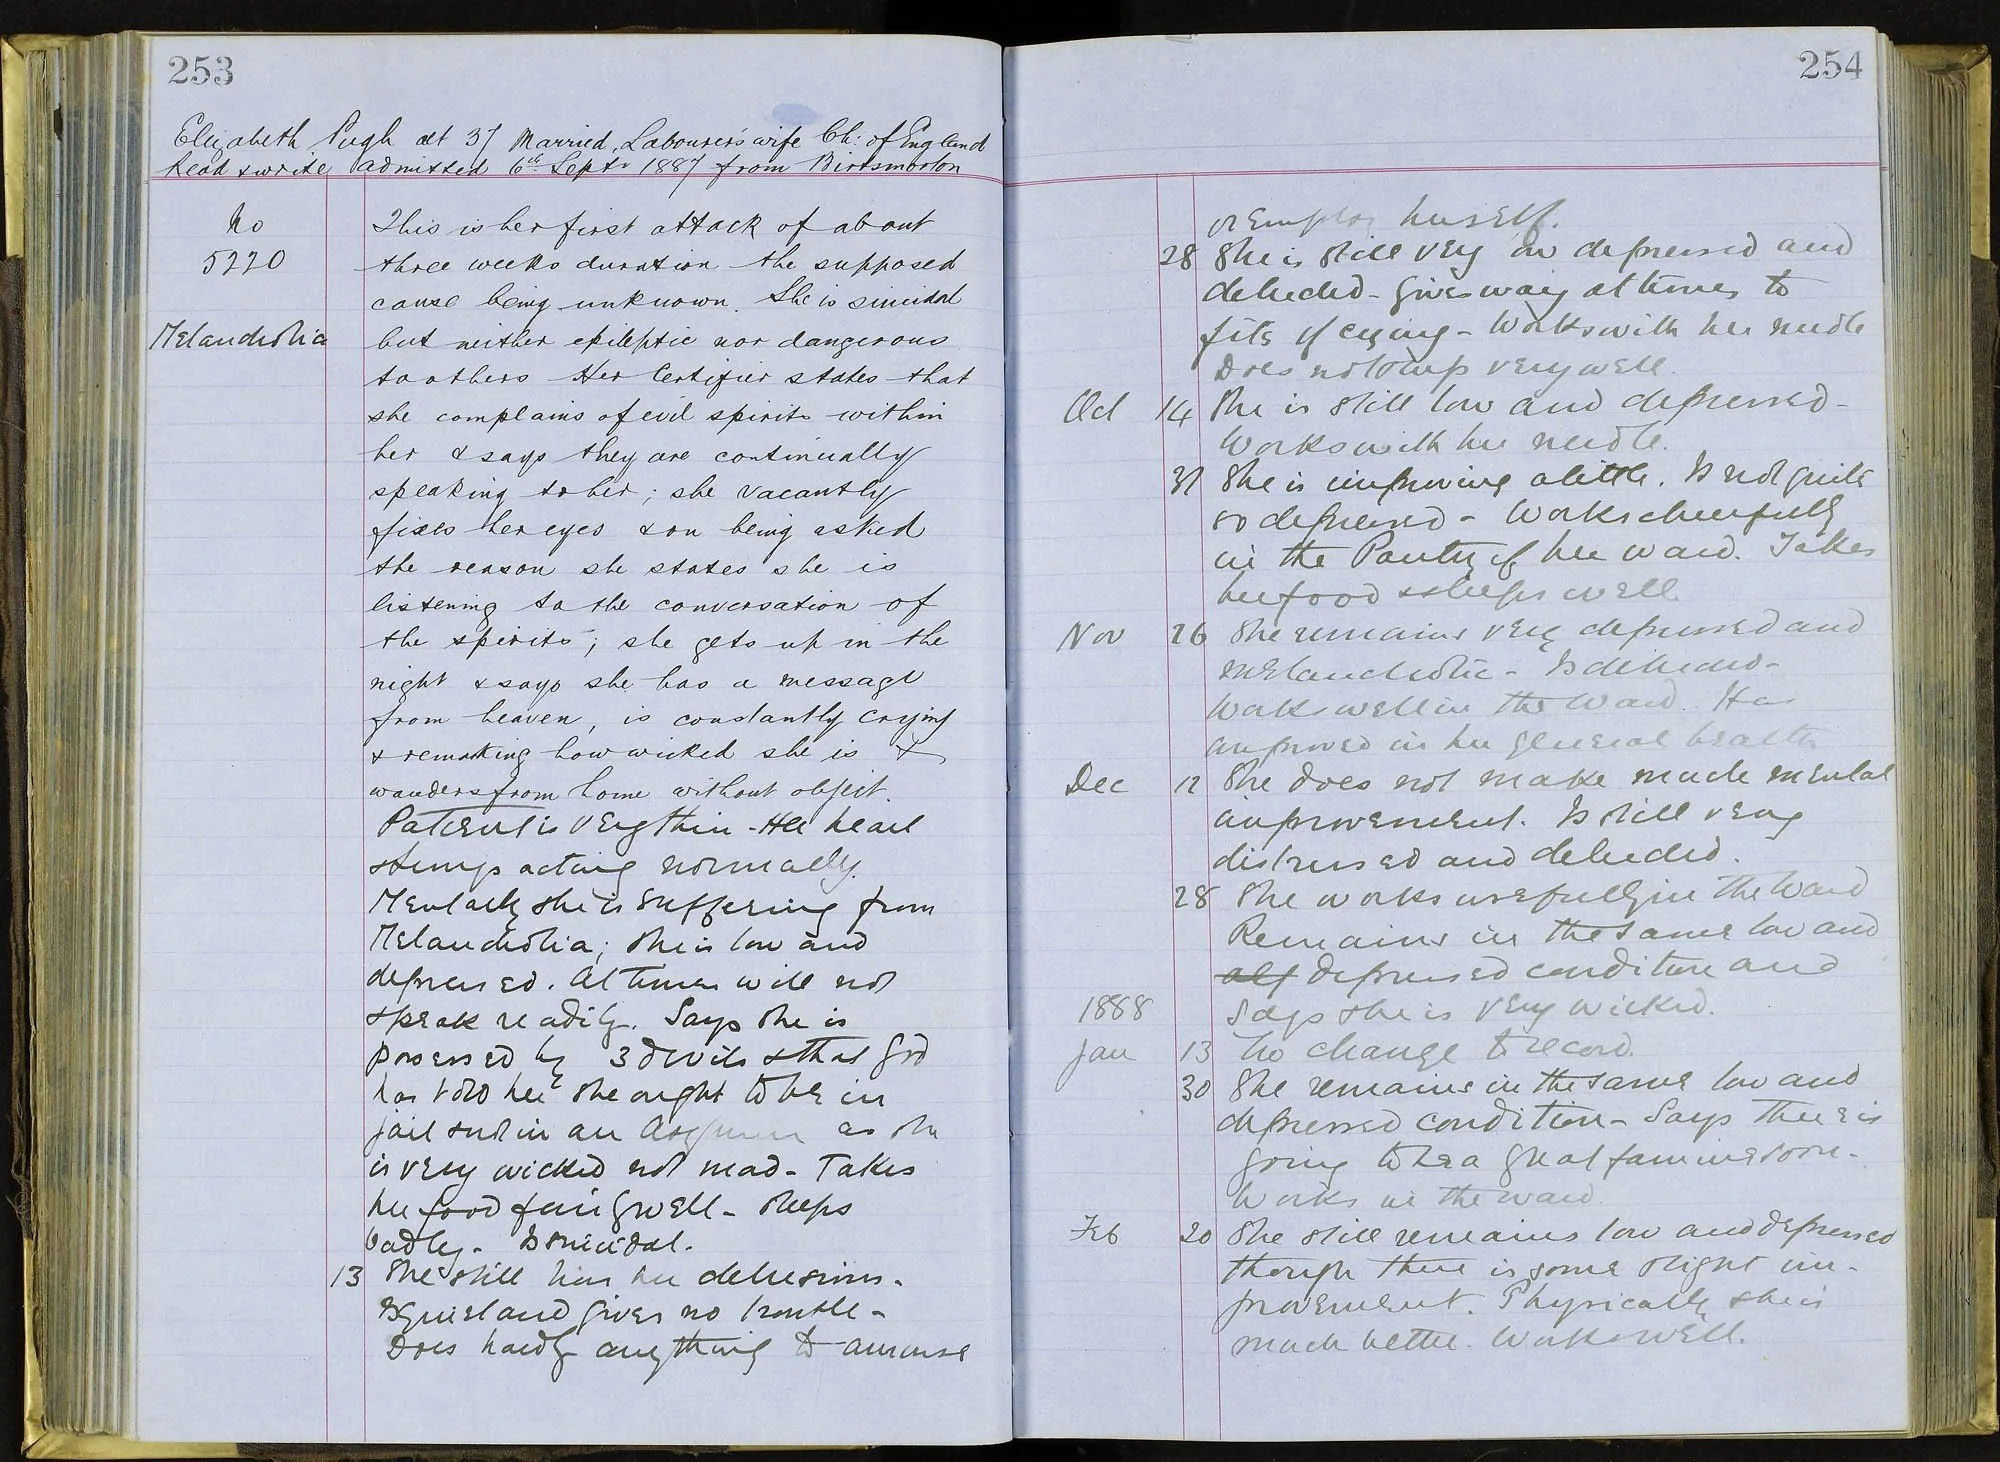 253
Elizabeth Pugh æt 37 Married, Labourer's wife Ch: of England
Read & write admitted 6th Septr 1887 from Birtsmorton
No This is her first attack of about
5220 three weeks duration the supposed
cause being unknown. She is suicidal
Melancholia but neither epileptic nor dangerous
to others Her Certifier states that
she complains of evil spirits within
her & says they are continually
speaking to her; she vacantly
fixes her eyes & on being asked
the reason she states she is
listening to the conversation of
the spirits; she gets up in the
night & says she has a message
from heaven, is constantly crying
& remarking how wicked she is &
wanders from home without object.
Patient is very thin - Her heart
& lungs acting normally.
Mentally she is suffering from
Melancholia; she is low and
depressed. At times will not
speak readily. Says she is
possessed by 3 devils & that God
has told her she ought to be in
jail & not in an Asylum as she
is very wicked not mad - Takes
her food fairly well - sleeps
badly - Is suicidal.
13 She still has her delusions.
Is quiet and gives no trouble -
Does hardly anything to amuse
254
or employ herself.
28 She is still very low depressed and
deluded - gives way at times to
fits of crying - Works with her needle
Does not sleep very well.
Oct 14 She is still low and depressed -
Works with her needle.
31 She is improving a little. Is not quite
so depressed - Works cheerfully
in the Pantry of her ward. Takes
her food & sleeps well.
Nov 26 She remains very depressed and
melancholic - Is deluded -
Works well in the Ward. Has
improved in her general health
Dec 12 She does not make much mental
improvement. Is still very
distressed and deluded.
28 She works usefully in the Ward
Remains in the same low and
depressed condition and
1888 says she is very wicked.
Jan 13 No change to record.
30 She remains in the same low and
depressed condition - Says there is
going to be a great famine soon -
Works in the ward.
Feb 20 She still remains low and depressed
though there is some slight im-
provement. Physically she is
much better. Works well.